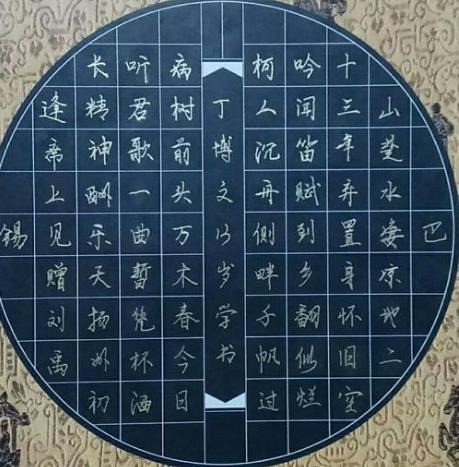 巴
山楚水凄凉地二
十三年弃置身怀旧空
吟闻笛赋到乡翻似烂
柯人沉舟侧畔千帆过
丁博文13岁学书
病树前头万木春今日
听君歌一曲暂凭杯酒
长精神酬乐天扬州初
逢席上见赠刘禹
锡